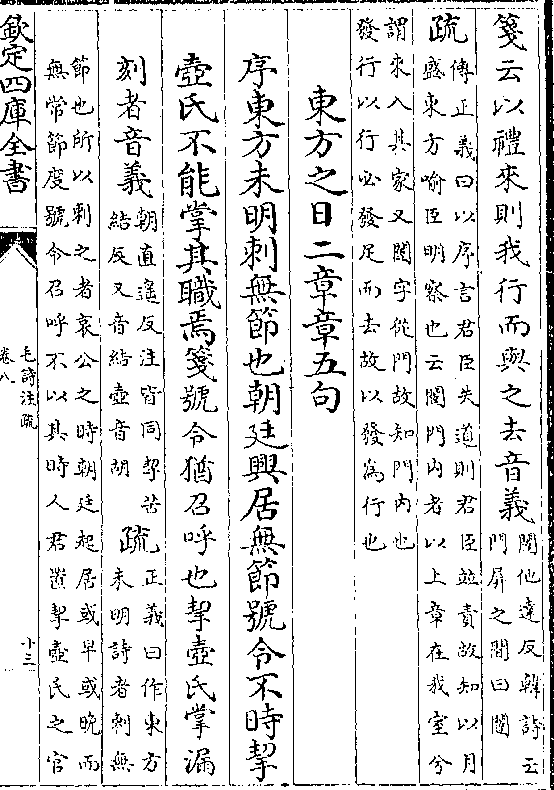 箋云以禮來則我行而與之去音義闥他達反韓詩云
門屏之間曰闥
疏傳正義曰以序言君臣失道則君臣並責故知以月
盛東方喻臣明察也云闥門内者以上章在我室兮
謂來入其家又闥字從門故知門内也
發行以行必發足而去故以發為行也
東方之日二章章五句
序東方未明刺無節也朝廷興居無節號令不時挈
壺氏不能掌其職焉箋號令猶召呼也挈壺氏掌漏
刻者音義朝直遥反注皆同挈苦
結反又音結壺音胡
疏正義曰作東方
未明詩者刺無
節也所以刺之者哀公之時朝廷起居或早或晚而
無常節度號令召呼不以其時人君置挈壺氏之官
欽定四庫全書
毛詩注疏
卷八
十三